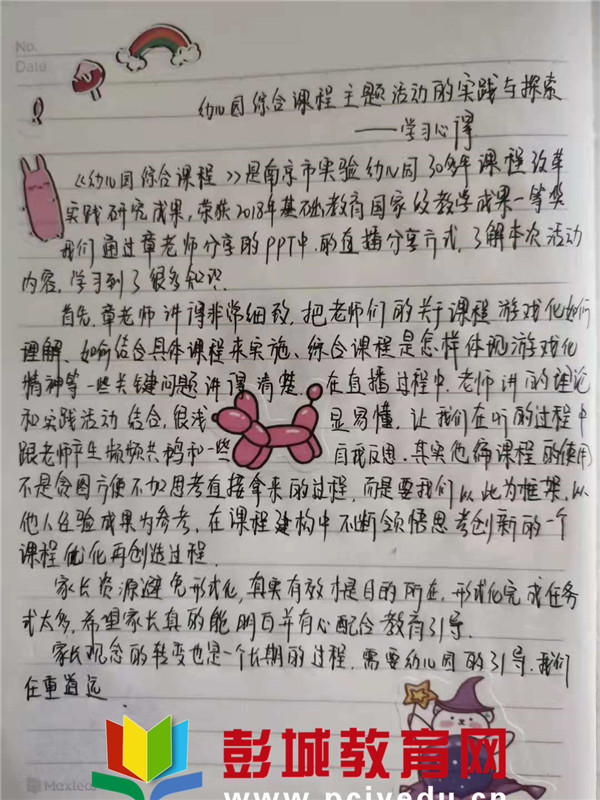 No.
Date
幼儿园综合课程主题活动的实践与探索
——学习心得
《幼儿园综合课程》是南京市实验幼儿园30多年课程改革
实践研究成果,荣获2018年基础教育国家级教学成果一等奖
我们通过章老师分享的PPT中的直播分享方式,了解本次活动
内容,学习到了很多知识.
首先,章老师讲得非常细致,把老师们的关于课程游戏化如何
理解、如何结合具体课程来实施、综合课程是怎样体现游戏化
精神等一些关键问题讲得清楚.在直播过程中,老师讲的理论
和实践活动结合,很浅显易懂,让我们在听的过程中
跟老师产生频频共鸣和一些自我反思.其实他编课程的使用
不是贪图方便不加思考直接拿来的过程,而是要我们以此为框架,以
他人经验成果为参考,在课程建构中不断领悟思考创新的一个
课程优化再创造过程.
家长资源避免形式化,真实有效才是目的所在,形式化完成任务
式太多,希望家长真的能明白并有心配合教育引导.
家长观念的转变也是一个长期的过程,需要幼儿园的引导.我们
任重道远.
Maxleaf
彭城教育网
www.pcjyedu.cn